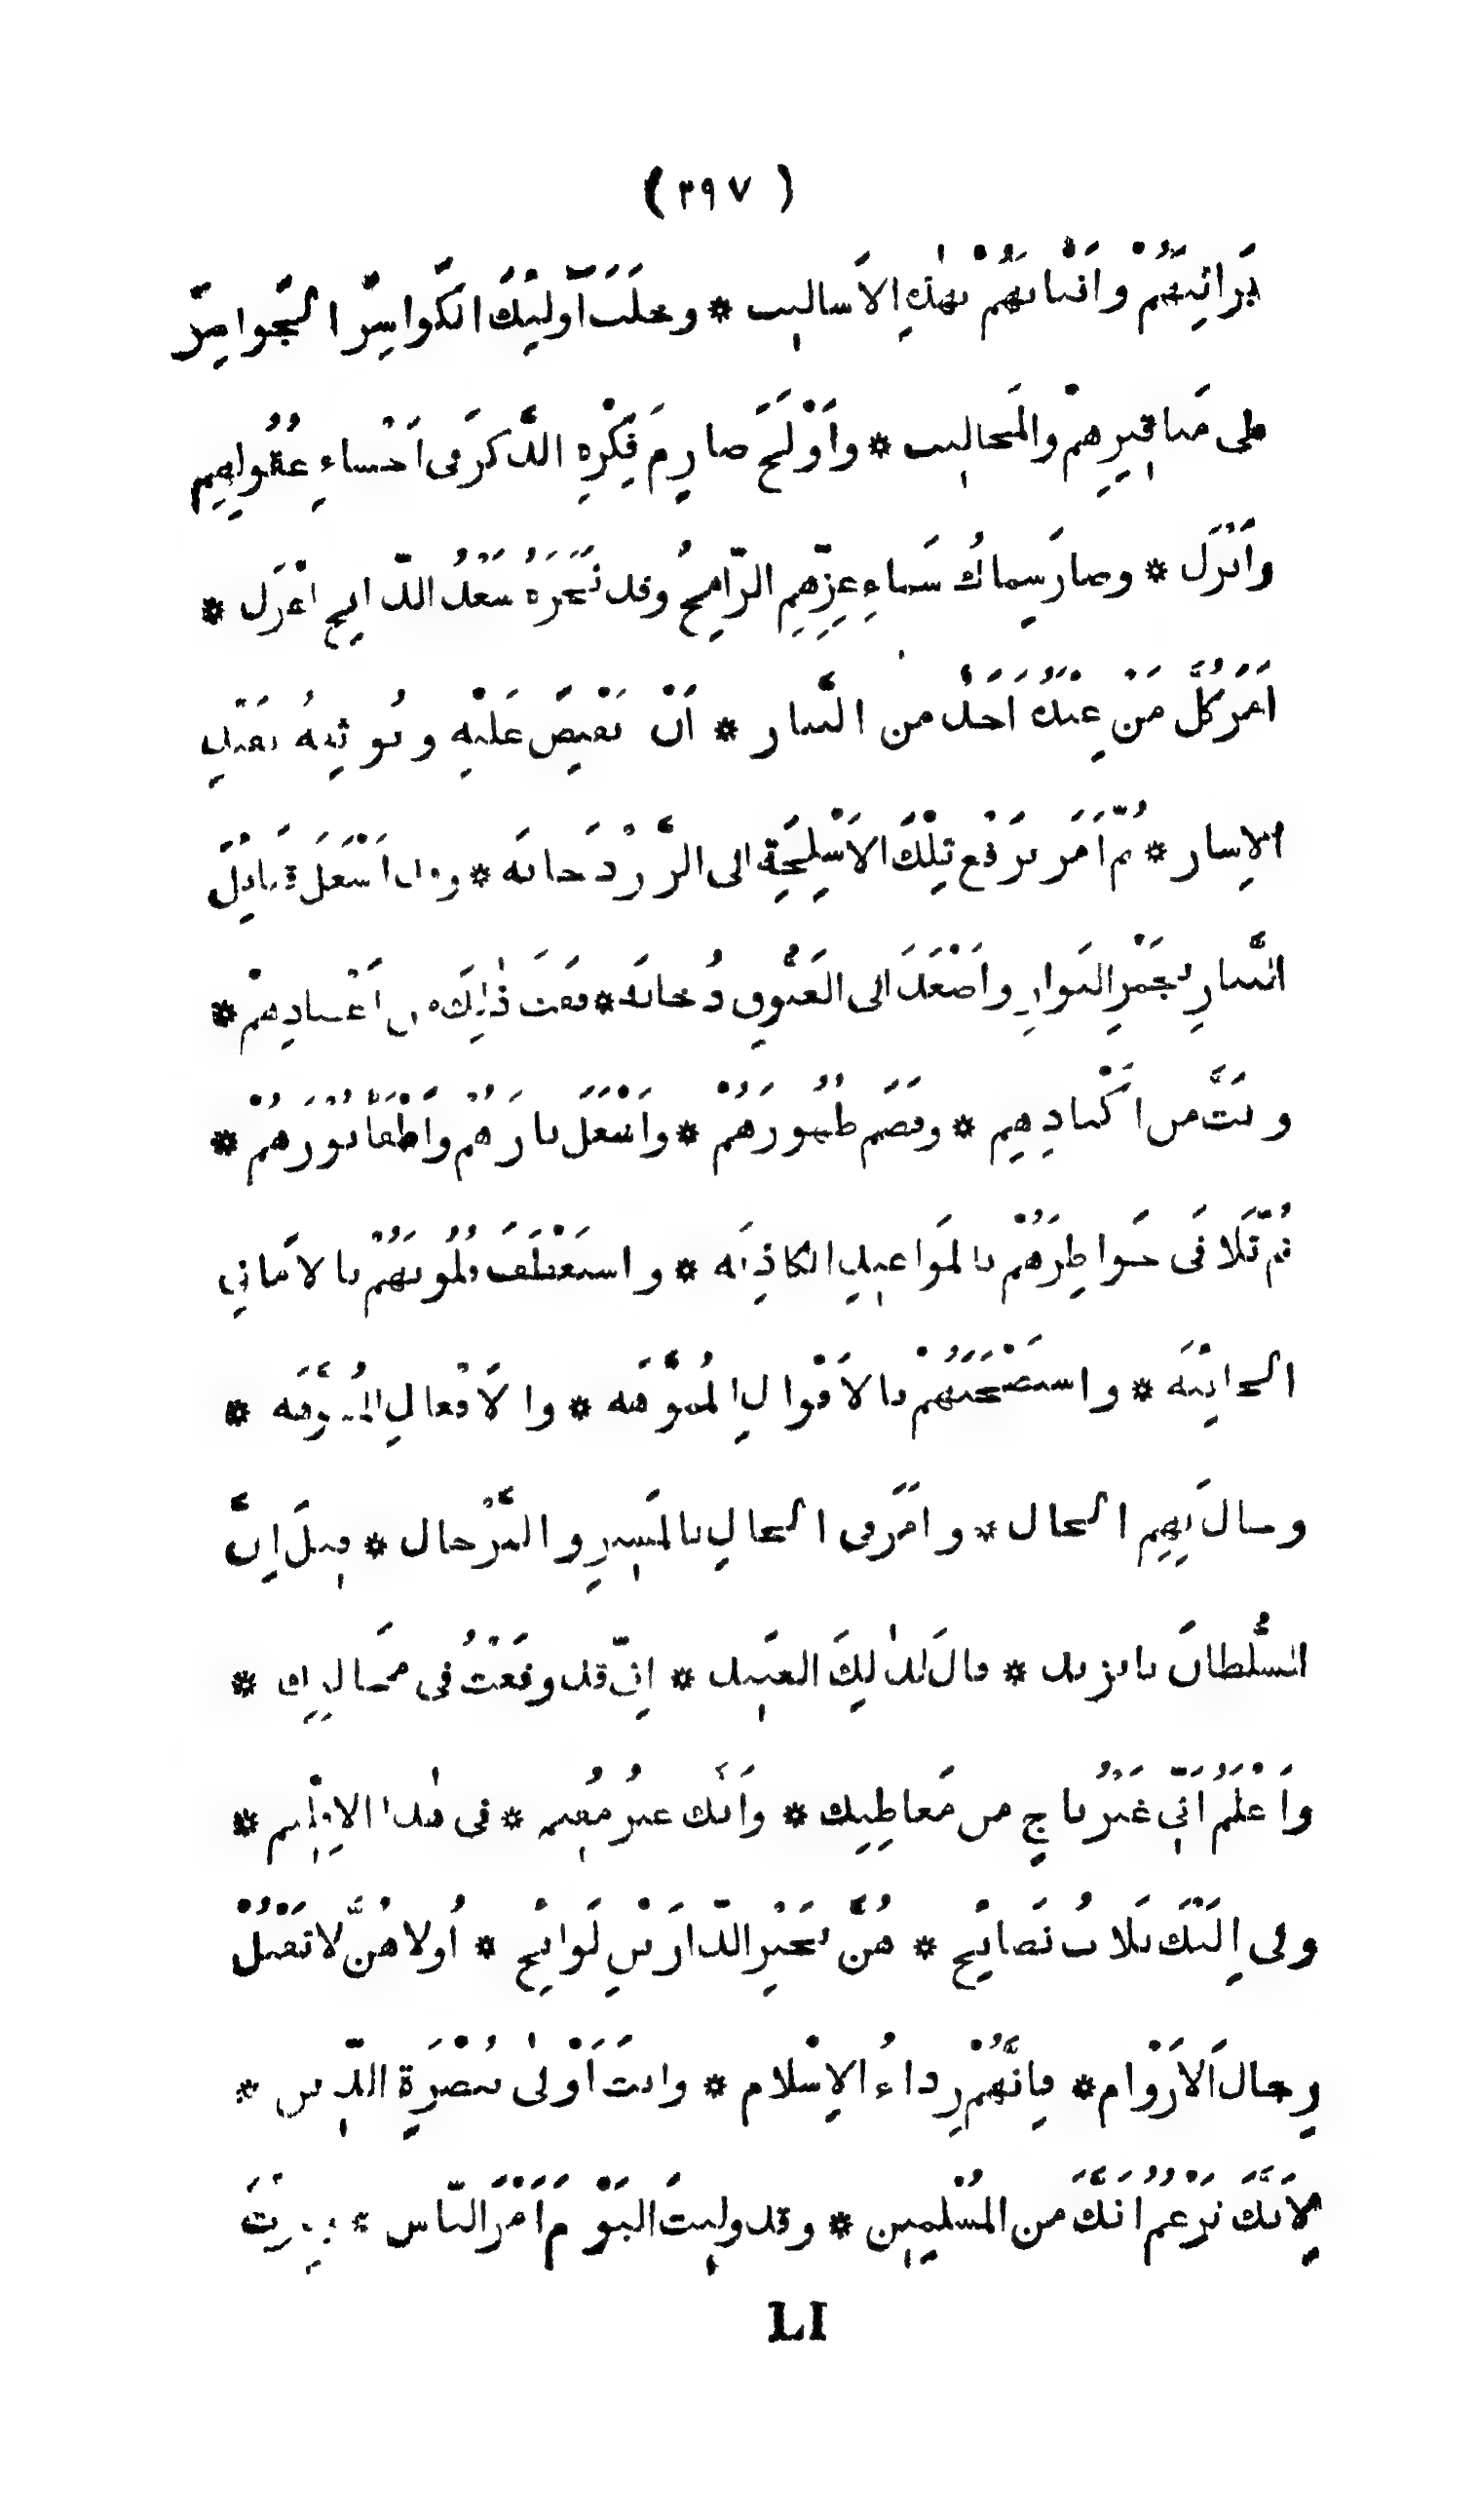 ( ٣٩٧ )
بَراثِنَهُمْ وأنْيابَهُمْ بهٰذِهِ الأَساليب * وخَلَبَ أُولئِكَ الكَواسِرَ الجَوامِزَ
على مَناقيرِهِمْ والمَخاليب * وأَوْلَجَ صارِمَ فِكْرِهِ الذَّكَرَ فى أَحْشاءِ عُقُولِهِم
وأَنْزَلَ * وصارَ سِماكُ سَماءِ عِزِّهِمِ الرّامِحُ وقد نَحَرَهُ سَعْدُ الذّابِحِ أعْزَلَ *
أمَرَ كُلَّ مَنْ عِنْدَهُ أحَدٌ من التَّتار * أنْ يَقْبِضَ عَلَيْهِ ويُوثِقَهُ بقَيْدِ
الإسار * ثُمَّ أمَرَ بِرَفْعِ تِلْكَ الأَسْلِحَةِ الى الزَّرْدَخانَه * وقد أشْعَلَ قَبائِلَ
التَّتارِ بِجَمْرِ البَوارِ وأصْعَدَ الى العَيُّوقِ دُخانَه * ففَتَّ ذٰلِكَ فى أعْضادِهِمْ *
وبَتَّ من أكْبادِهِم * وقَصَمَ ظُهُورَهُمْ * وأَشْعَلَ نارَهُمْ وأَطْفَأَ نُورَهُمْ *
ثُمَّ تَلافَى خَواطِرَهُمْ بالمَواعيدِ الكاذِبَه * واستَعْطَفَ قُلُوبَهُمْ بالأَمانِي
الخائِبَه * واستَصْحَبَهُمْ بالأَقْوالِ المُمَوَّهَه * والأَفْعالِ
وحالَ بِهِمِ الحال * وأمَرَ فى الحالِ بالمَسيرِ والتَّرْحال * قيلَ إنَّ
السُّلْطانَ بايزيد * قالَ لذٰلِكَ العَنيد * انّى قد وقَعْتُ فى مَخاليبِك *
وأَعْلَمُ أنّى غَيْرُ ناجٍ من مَعاطِبِك * وأَنَّكَ غيرُ مُقيم * فى هٰذا الإقليم *
ولى إلَيْكَ ثَلاثُ نَصائِح * هُنَّ بخَيْرِ الدّارَيْنِ لَوائِح * أُولاهُنَّ لا تَقْتُلْ
رِجالَ الأَرْوام * فإنَّهُمْ رِداءُ الإسْلام * وانتَ أَوْلىٰ بنُصْرَةِ الدّين *
لأَنَّكَ تَزْعُمُ أنَّكَ من المُسْلِمين * وقد وليتَ اليَوْمَ أَمْرَ النّاس *
LI